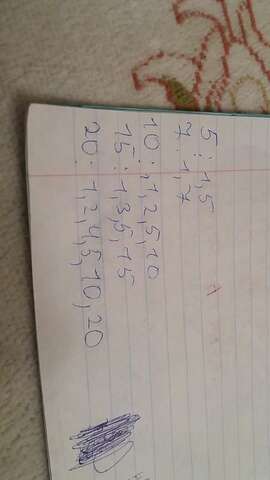 5: 1, 5
7: 1, 7
10: 1, 2, 5, 10
15: 1, 3, 5, 15
20: 1, 2, 4, 5, 10, 20